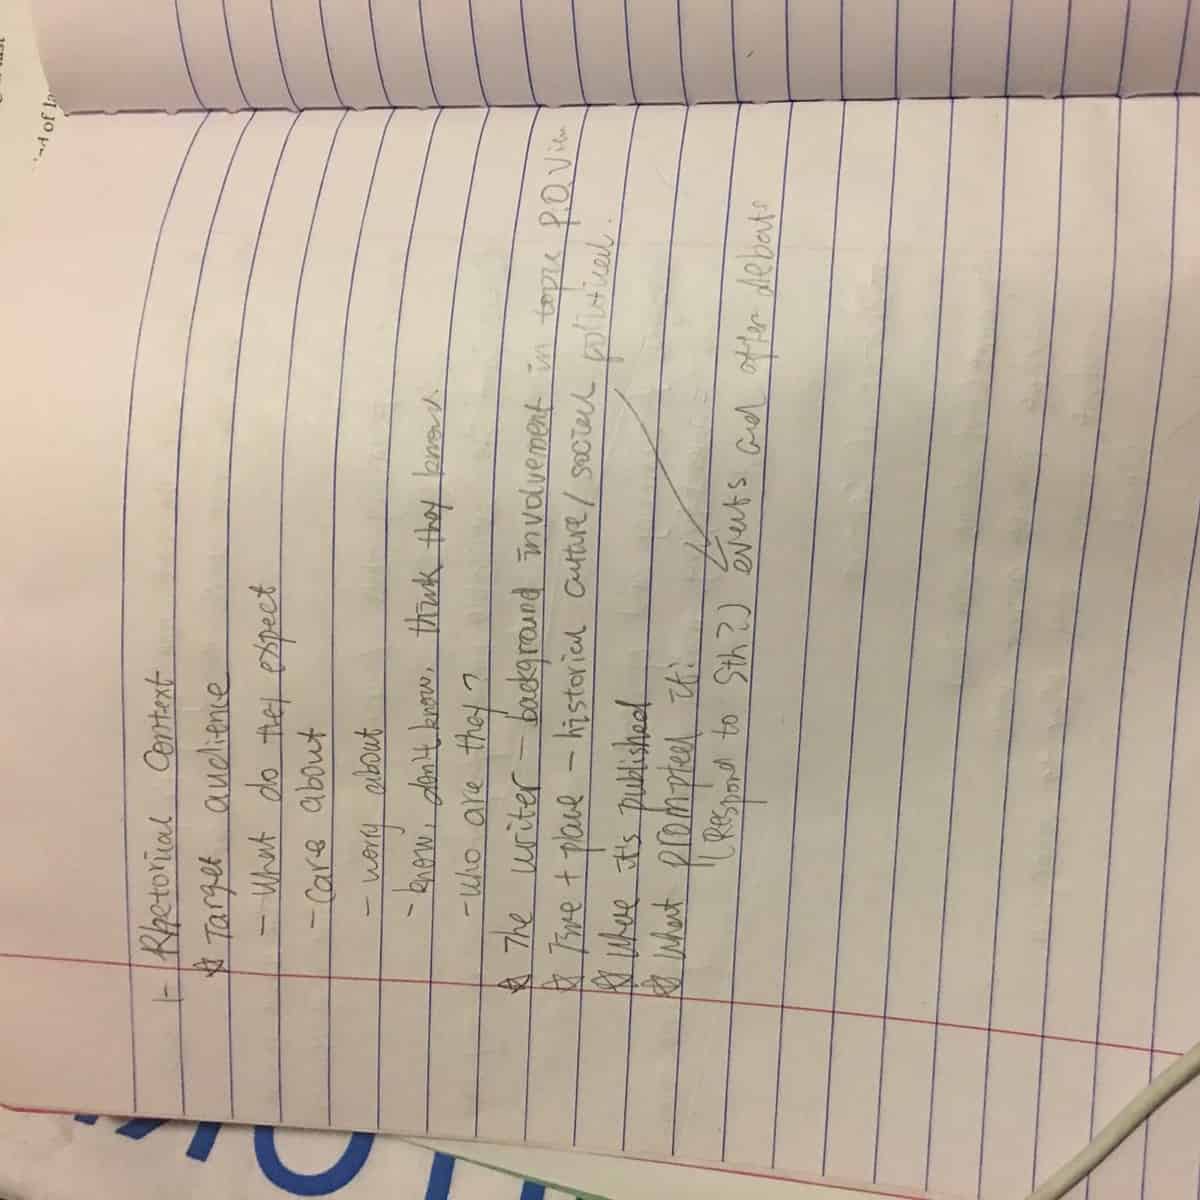 1- Rhetorical Context
☆ Target audience
- What do they expect
- Care about
- worry about
- know, don't know, think they know.
- who are they?
☆ The writer - background involvement in topic P.O.View
☆ Time + place - historical culture/social political.
☆ Where it's published
☆ What prompted it?
(Respond to sth?) events and after debate